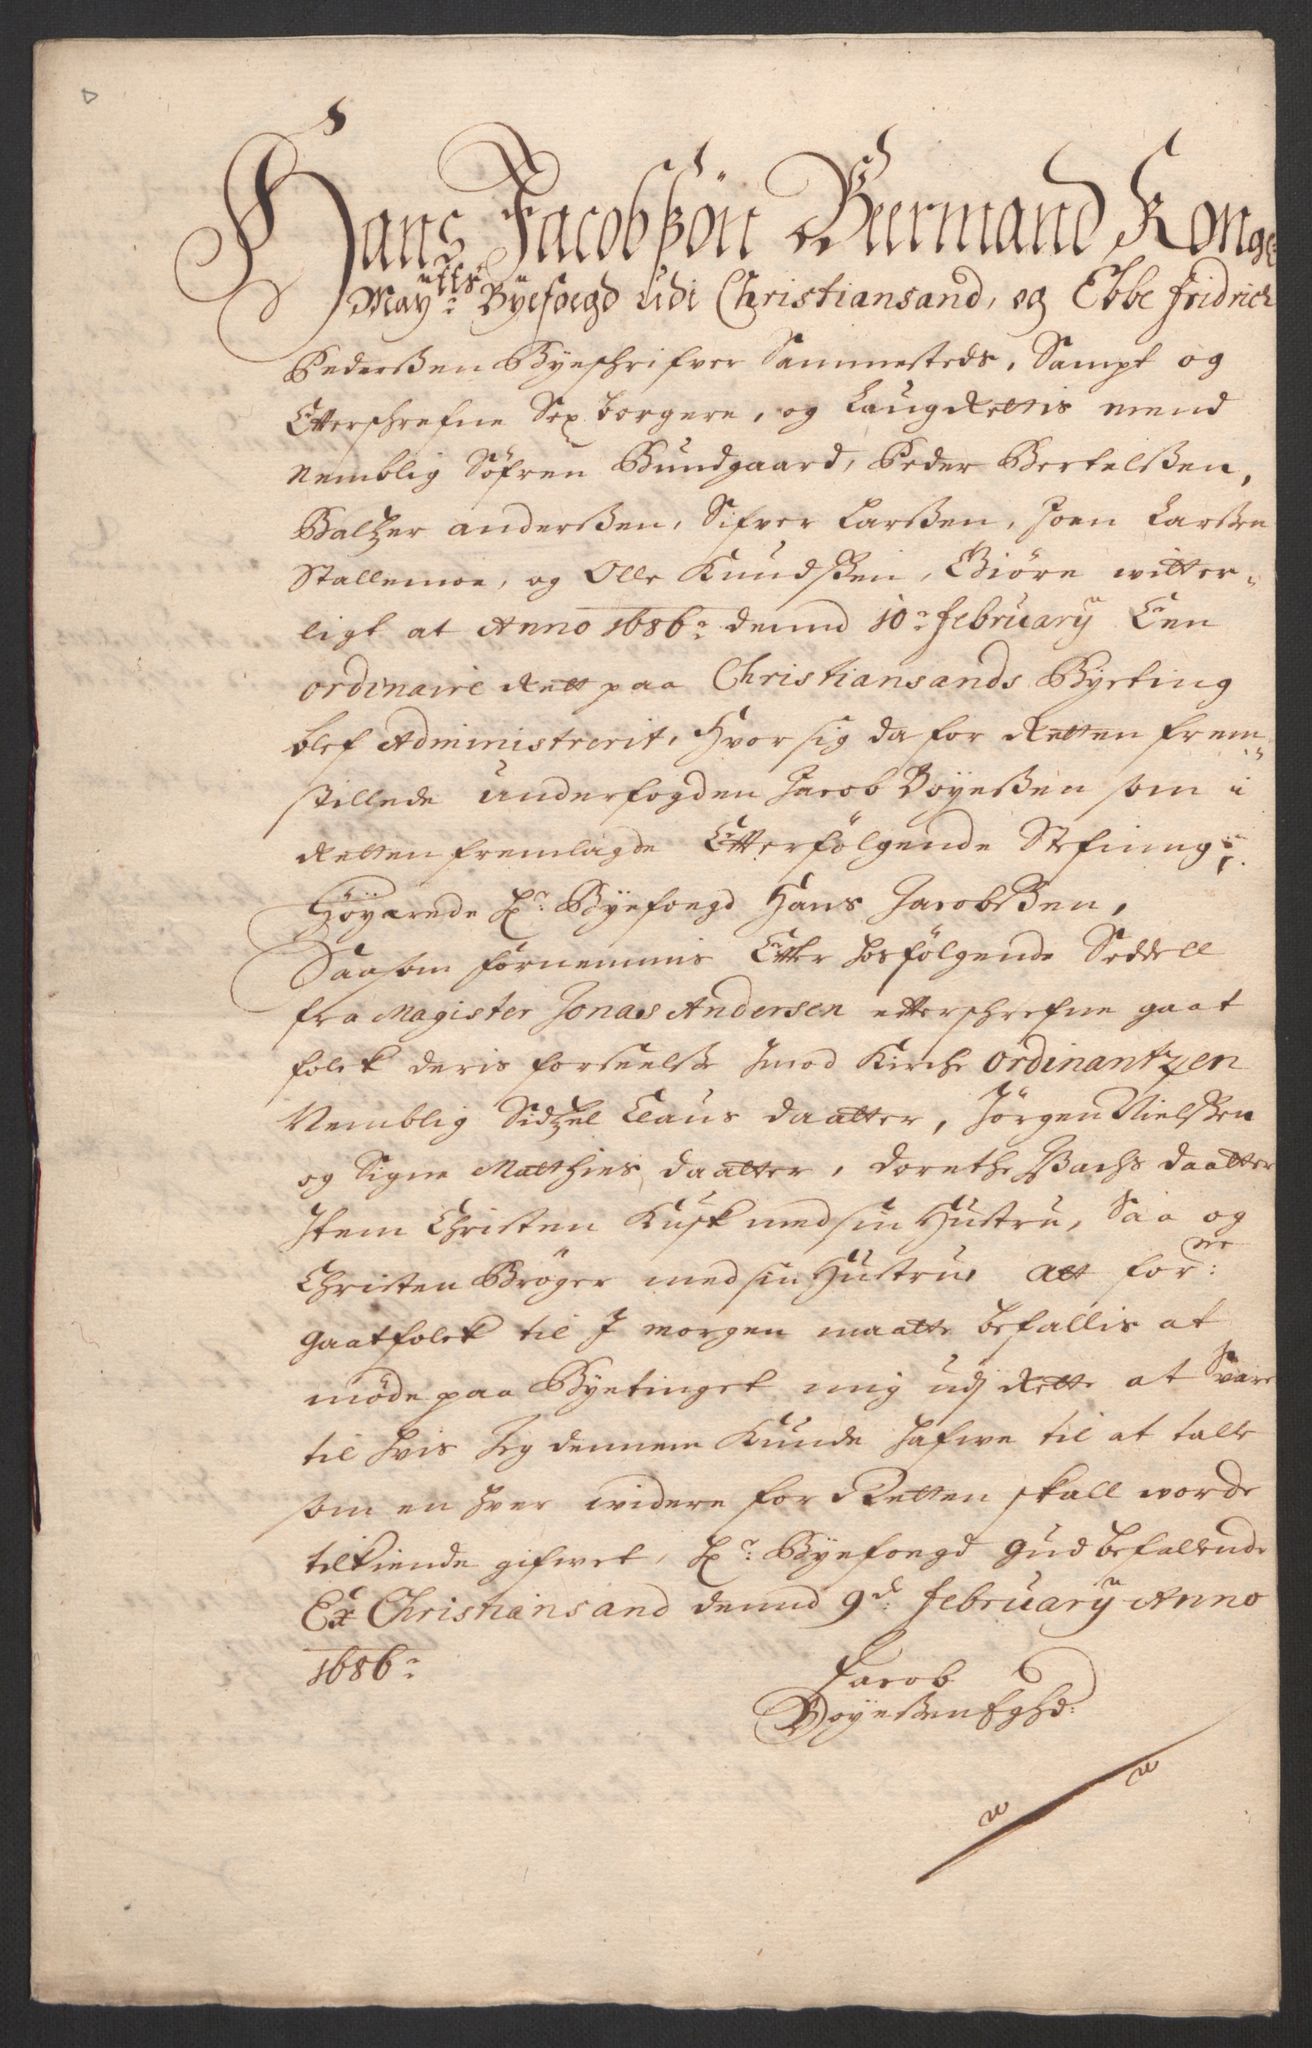 Hans Jacobßön Beermand Kong:
May: etts Byefoegd udi Christiansand, og Ebbe Fridrich
Pederßen Byeschrifver Sammesteds, Sampt og
Etterschrefne Sex borgere, og Laug Rettis mend
Nemblig Söfren Bundgaard, Peder Bertelßen,
Baltzer anderßen, Sifver Larßen, Joen Larßen
Stallemoe, og Olle Knudßen, Giöre witter-
ligt at Anno 1686: dennd 10: february Een
ordinaire Rett paa Christiansands Byeting
blef Administrerit, Hvor sig da for Retten frem-
stillede underfogden Jacob Boyeßen som i
Retten fremlagde Etterfölgende Stefning:
Höyærede Hr: Byefoegd Hans Jacobßen,
Saasom fornemmis Etter hosfölgende Seddell
fra Magister Jonas Andersen etterschrefne gaat
folck deris forseelße Imod Kirche ordinantzen
Nemblig Sidzel Claus daatter, Jörgen Nielßen
og Signe Matthies daatter, Dorethe Bachs daatter
Item Christen Kusk med sin Hustru, Saa og
Christen Bröger med sin Hustru, Att for: ne
gaatfolck til I morgen maatte befallis at
möde paa Byetinget mig udj Rette at Svare
til hvis Jeg dennem Kunde hafwe til at talle
som en hver widere for Retten skall worde
tilkiende gifwet, Hr: Byefoegd Gud befallende
Ex Christiansand dennd 9d: february Anno
1686:
Jacob
Boyeßen Eghd: